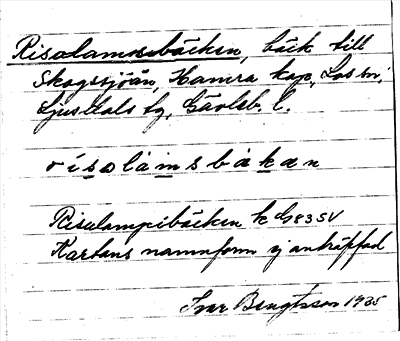 Risolamsbäcken, bäck till
Skogssjöån, Hamra kap., Los sn,
Ljusdals tg, Gävleb. l.
rísolàmsbäkən
Risulampibäcken k G83SV
Kartans namnform ej anträffad
Ivar Bengtsson 1935